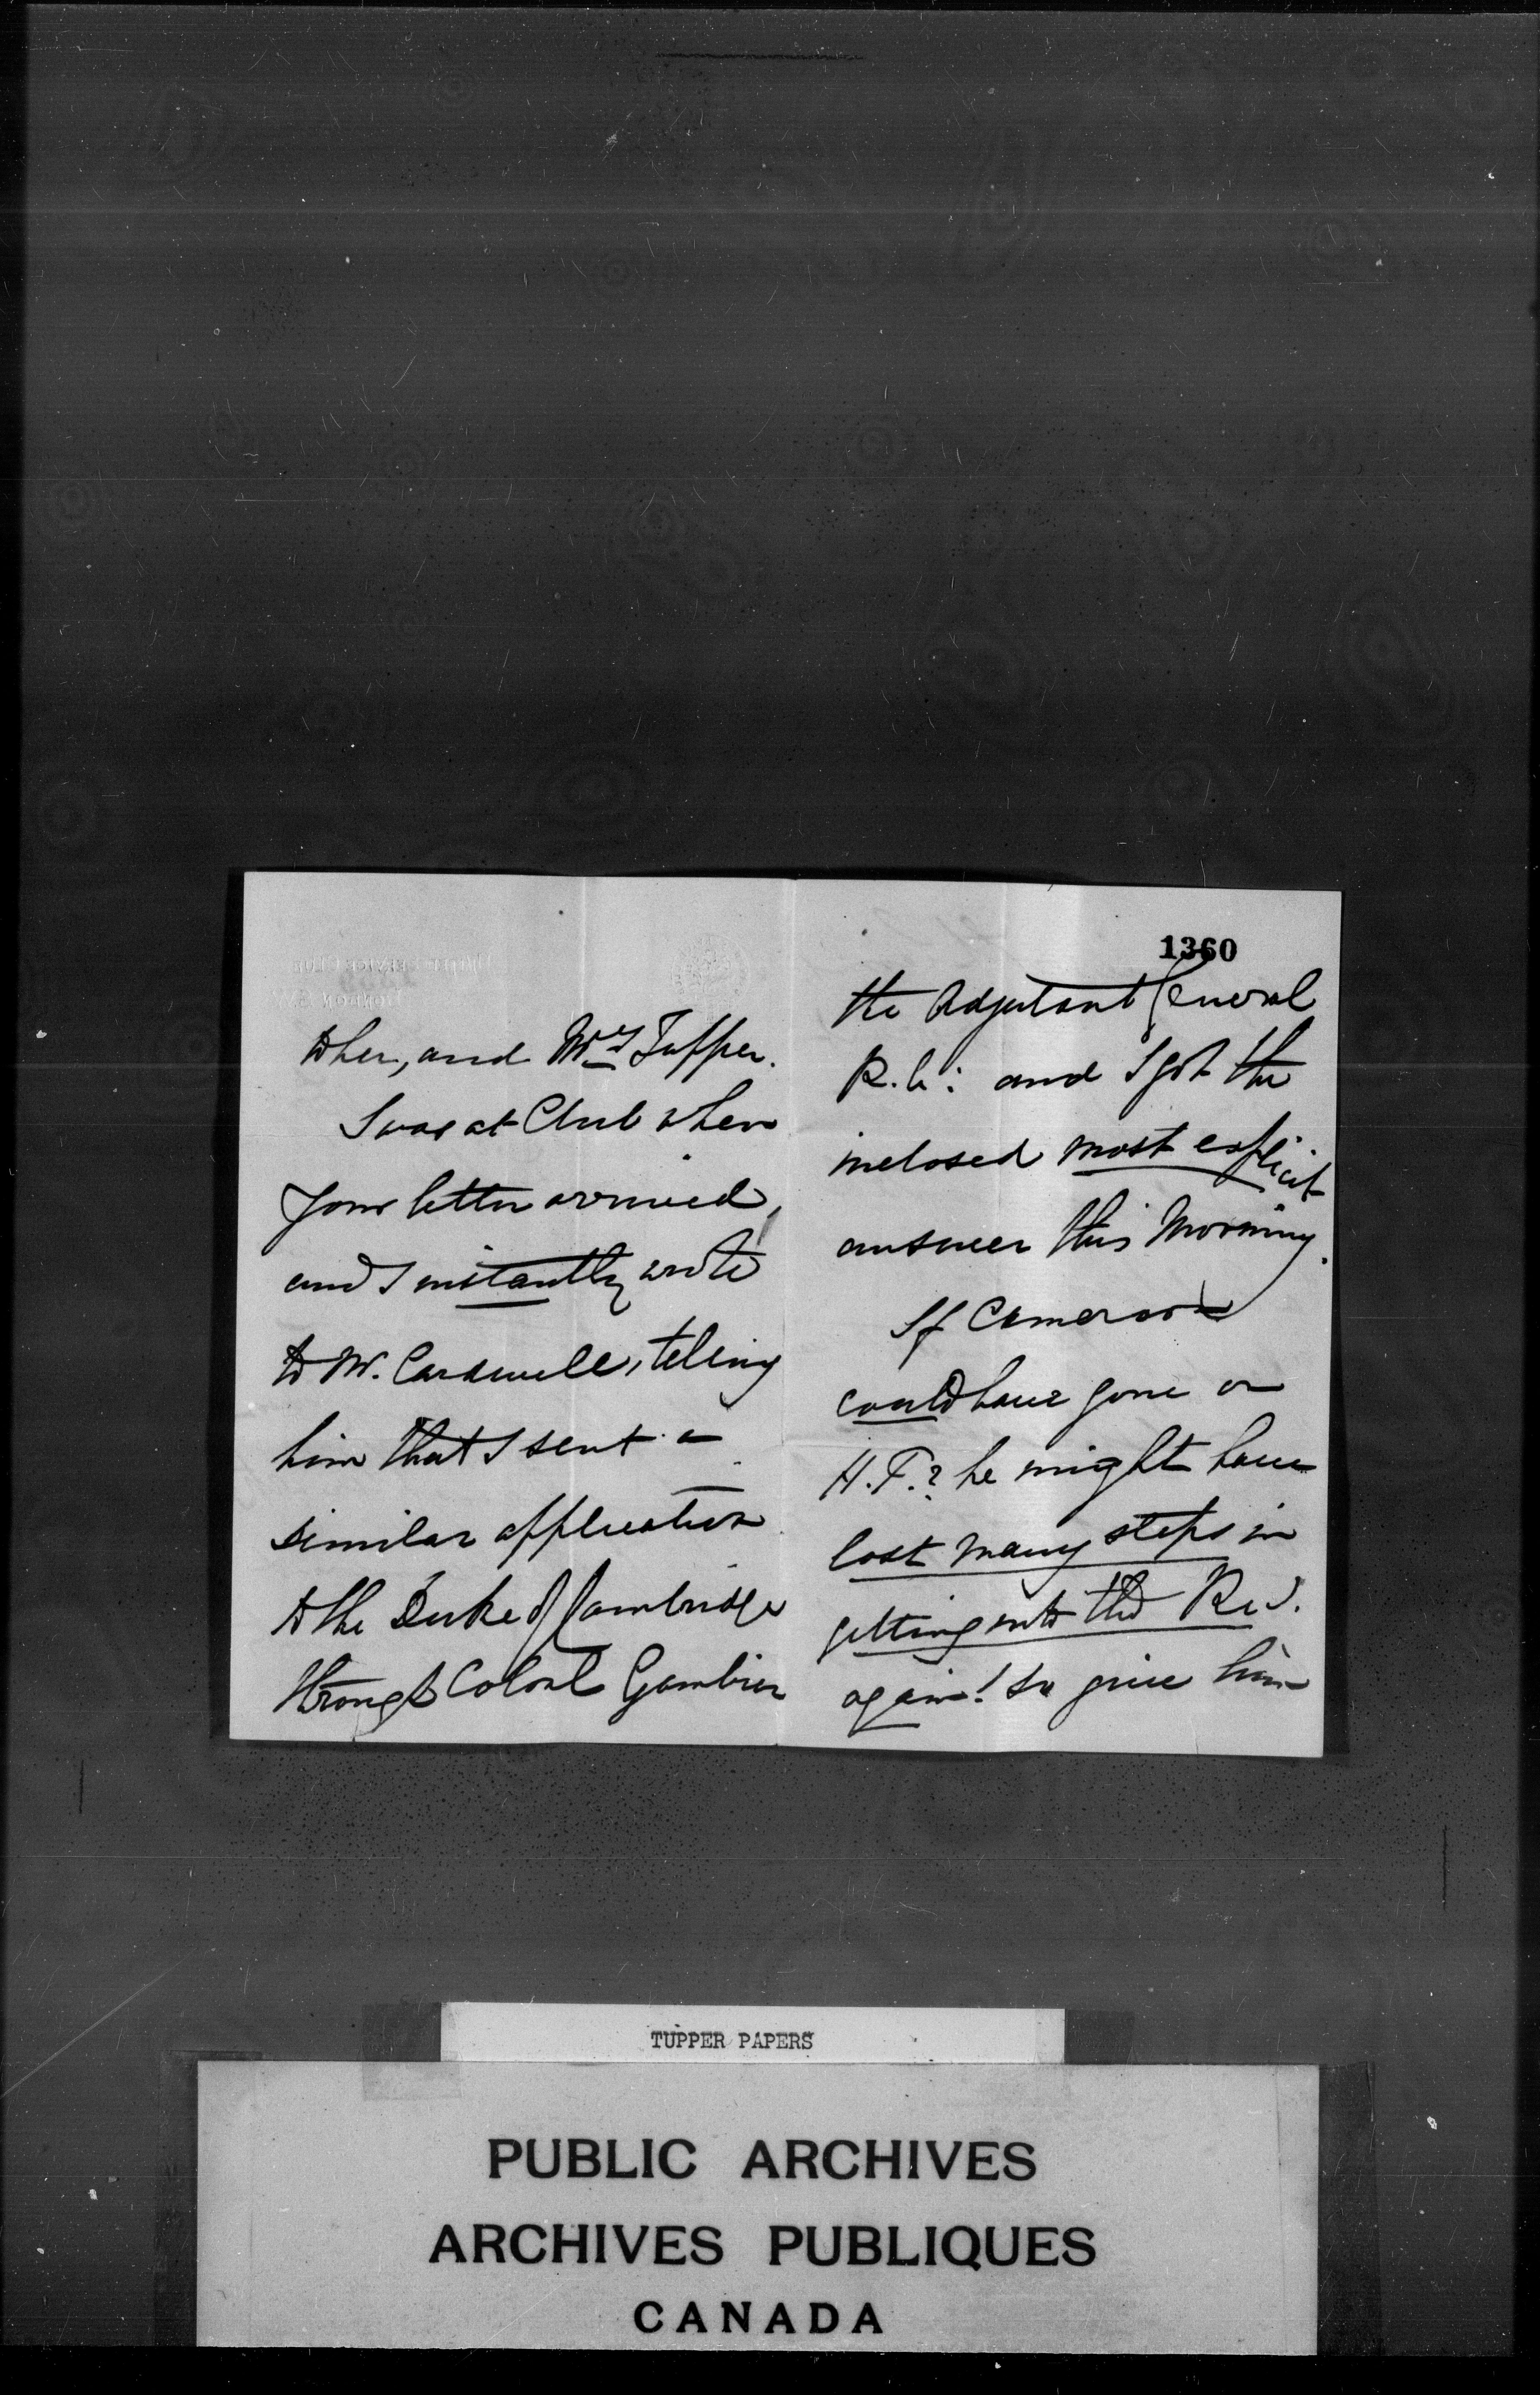 to her, and Mrs Tupper.
I was at Club when
your letter arrived,
and I instantly wrote
to Mr. Cardwell, teling
him that I sent a
similar application
to the Duke of Cambridge
through Colonl Gambier
1360
the Adjutant General
R.A: and I got the
inclosed most explicit
answer this morning.
If Cameron
could have gone on
H.P.? he might have
lost many steps in
getting into the
again! to give him
TUPPER PAPERS
PUBLIC ARCHIVES
ARCHIVES PUBLIQUES
CANADA